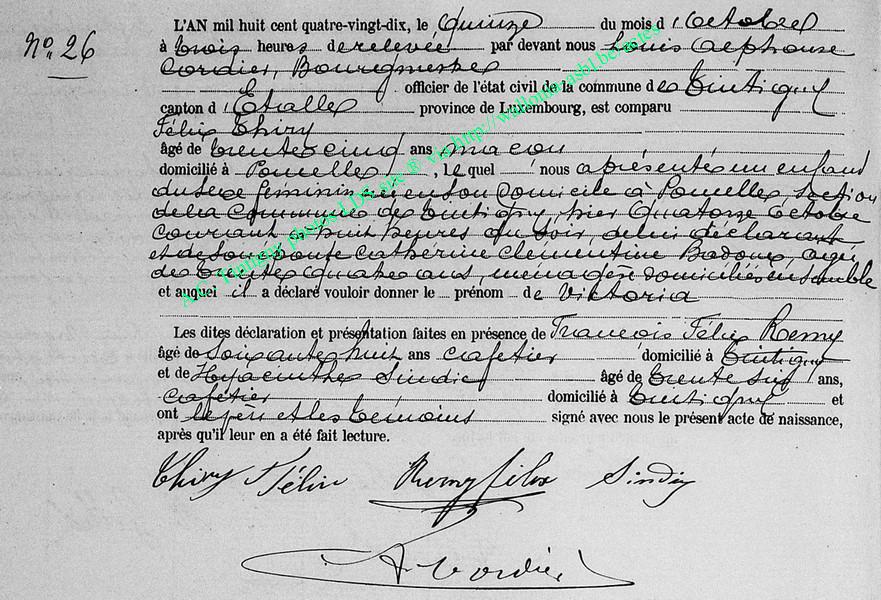 L'AN mil huit cent quatre-vingt-dix, le quinze du mois d'Octobre
No. 26
à trois heures de relevée par devant nous Louis Alphonse
Cordier, Bourgmestre
officier de l'état civil de la commune de Tintigny
canton d'Etalle province de Luxembourg, est comparu
Félix Thiry
âgé de trente cinq ans maçon
domicilié à Poncelle, lequel nous a présenté un enfant
du sexe féminin né en son domicile à Poncelle section
de la commune de Tintigny, hier quatorze Octobre
courant à huit heures du soir, de lui déclarant
et de son épouse Catherine Clémentine Badoux, agée
de trente quatre ans, ménagère domiciliés ensemble
et auquel il a déclaré vouloir donner le prénom de Victoria
Les dites déclaration et présentation faites en présence de François Félix Remy
âgé de soixante huit ans cafetier domicilié à Tintigny
et de Hyacinthe Sindic âgé de trente six ans,
cafetier domicilié à Tintigny et
ont le père et les témoins signé avec nous le présent acte de naissance,
après qu'il leur en a été fait lecture.
Thiry Félix Remy félix Sindic
A. Cordier
A.C. Tintigny photos LDS site ® via http://wallonia-asbl.be/actes